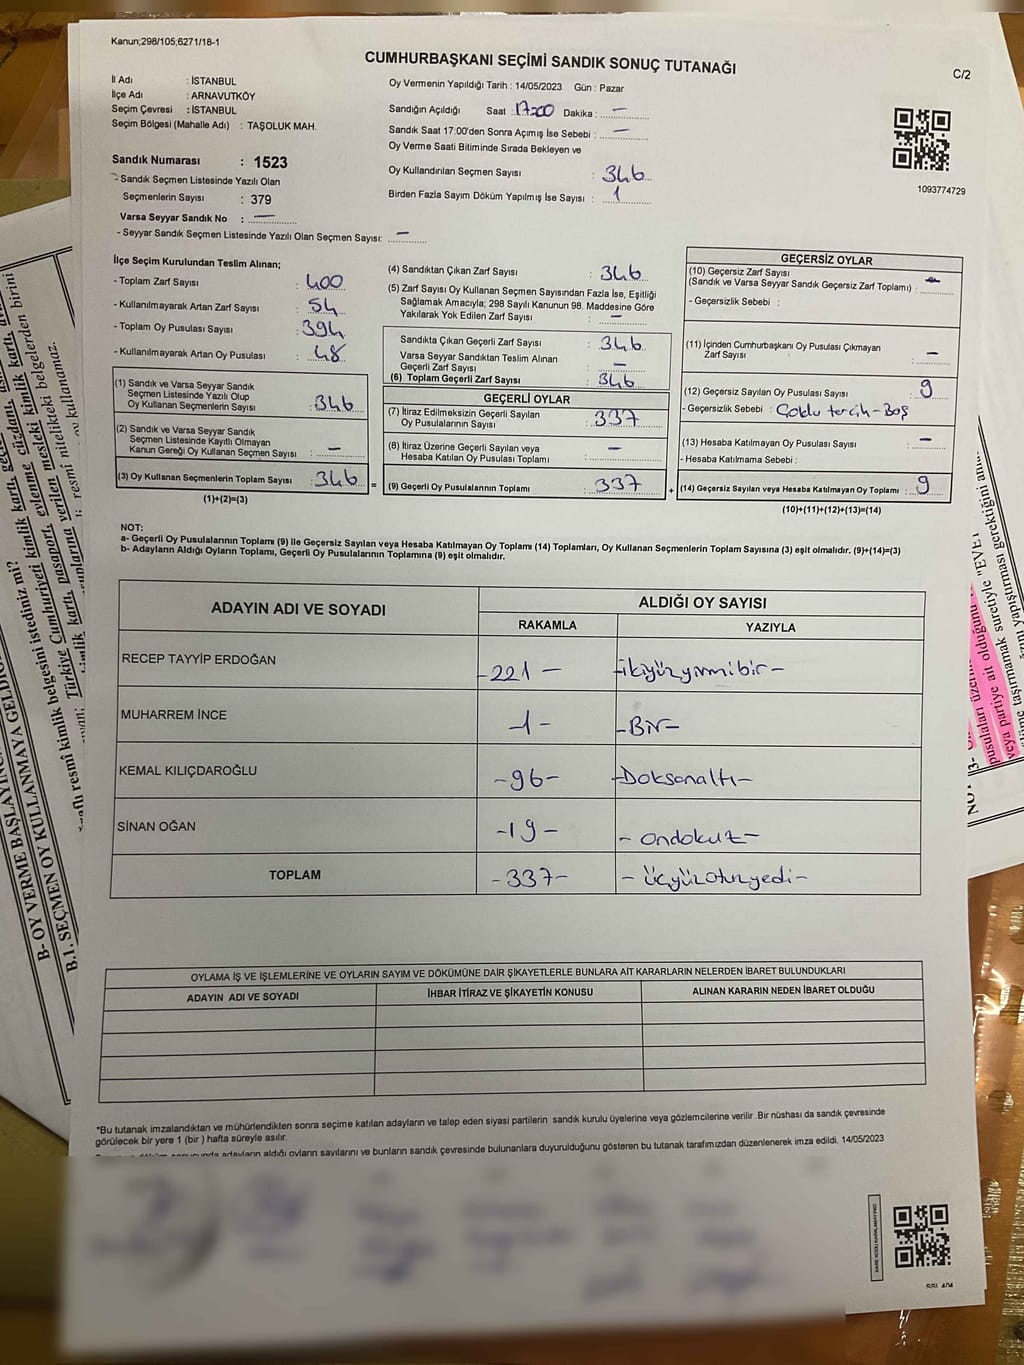 Kanun;298/105;6271/18-1
CUMHURBAŞKANI SEÇİMİ SANDIK SONUÇ TUTANAĞI
C/2
İl Adı : İSTANBUL
İlçe Adı : ARNAVUTKÖY
Seçim Çevresi : İSTANBUL
Seçim Bölgesi (Mahalle Adı) : TAŞOLUK MAH.
Sandık Numarası : 1523
- Sandık Seçmen Listesinde Yazılı Olan
Seçmenlerin Sayısı : 379
Varsa Seyyar Sandık No : —
- Seyyar Sandık Seçmen Listesinde Yazılı Olan Seçmen Sayısı: —
Oy Vermenin Yapıldığı Tarih : 14/05/2023 Gün : Pazar
Sandığın Açıldığı Saat : 17:00 Dakika : —
Sandık Saat 17:00'den Sonra Açımış İse Sebebi : —
Oy Verme Saati Bitiminde Sırada Bekleyen ve
Oy Kullandırılan Seçmen Sayısı : 346
Birden Fazla Sayım Döküm Yapılmış İse Sayısı : 1
1093774729
İlçe Seçim Kurulundan Teslim Alınan;
- Toplam Zarf Sayısı : 400
- Kullanılmayarak Artan Zarf Sayısı : 54
- Toplam Oy Pusulası Sayısı : 394
- Kullanılmayarak Artan Oy Pusulası : 48
(1) Sandık ve Varsa Seyyar Sandık
Seçmen Listesinde Yazılı Olup
Oy Kullanan Seçmenlerin Sayısı : 346
(2) Sandık ve Varsa Seyyar Sandık
Seçmen Listesinde Kayıtlı Olmayan
Kanun Gereği Oy Kullanan Seçmen Sayısı : —
(3) Oy Kullanan Seçmenlerin Toplam Sayısı : 346 =
(1)+(2)=(3)
(4) Sandıktan Çıkan Zarf Sayısı : 346
(5) Zarf Sayısı Oy Kullanan Seçmen Sayısından Fazla İse, Eşitliği
Sağlamak Amacıyla; 298 Sayılı Kanunun 98. Maddesine Göre
Yakılarak Yok Edilen Zarf Sayısı : —
Sandıkta Çıkan Geçerli Zarf Sayısı : 346
Varsa Seyyar Sandıktan Teslim Alınan
Geçerli Zarf Sayısı : —
(6) Toplam Geçerli Zarf Sayısı : 346
GEÇERLİ OYLAR
(7) İtiraz Edilmeksizin Geçerli Sayılan
Oy Pusulalarının Sayısı : 337
(8) İtiraz Üzerine Geçerli Sayılan veya
Hesaba Katılan Oy Pusulası Toplamı : —
(9) Geçerli Oy Pusulalarının Toplamı : 337 +
GEÇERSİZ OYLAR
(10) Geçersiz Zarf Sayısı
(Sandık ve Varsa Seyyar Sandık Geçersiz Zarf Toplamı) : —
- Geçersizlik Sebebi :
(11) İçinden Cumhurbaşkanı Oy Pusulası Çıkmayan
Zarf Sayısı : —
(12) Geçersiz Sayılan Oy Pusulası Sayısı : 9
- Geçersizlik Sebebi : Çoklu tercih - Boş
(13) Hesaba Katılmayan Oy Pusulası Sayısı : —
- Hesaba Katılmama Sebebi :
(14) Geçersiz Sayılan veya Hesaba Katılmayan Oy Toplamı : 9
(10)+(11)+(12)+(13)=(14)
NOT:
a- Geçerli Oy Pusulalarının Toplamı (9) ile Geçersiz Sayılan veya Hesaba Katılmayan Oy Toplamı (14) Toplamları, Oy Kullanan Seçmenlerin Toplam Sayısına (3) eşit olmalıdır. (9)+(14)=(3)
b- Adayların Aldığı Oyların Toplamı, Geçerli Oy Pusulalarının Toplamına (9) eşit olmalıdır.
ADAYIN ADI VE SOYADI ALDIĞI OY SAYISI
RAKAMLA YAZIYLA
RECEP TAYYİP ERDOĞAN -221- -ikiyüzyirmibir-
MUHARREM İNCE -1- -Bir-
KEMAL KILIÇDAROĞLU -96- -Doksanaltı-
SİNAN OĞAN -19- -ondokuz-
TOPLAM -337- -üçyüzotuzyedi-
OYLAMA İŞ VE İŞLEMLERİNE VE OYLARIN SAYIM VE DÖKÜMÜNE DAİR ŞİKAYETLERLE BUNLARA AİT KARARLARIN NELERDEN İBARET BULUNDUKLARI
ADAYIN ADI VE SOYADI İHBAR İTİRAZ VE ŞİKAYETİN KONUSU ALINAN KARARIN NEDEN İBARET OLDUĞU
*Bu tutanak imzalandıktan ve mühürlendikten sonra seçime katılan adayların ve talep eden siyasi partilerin sandık kurulu üyelerine veya gözlemcilerine verilir .Bir nüshası da sandık çevresinde
görülecek bir yere 1 (bir ) hafta süreyle asılır.
adayların aldığı oyların sayılarını ve bunların sandık çevresinde bulunanlara duyurulduğunu gösteren bu tutanak tarafımızdan düzenlenerek imza edildi. 14/05/2023
B- OY VERME BAŞLAYINCA
B.1. SEÇMEN OY KULLANMAYA GELDİĞ
resmî kimlik belgesini istediniz mi?
Türkiye Cumhuriyeti kimlik kartı,
kartı, pasaport, evlenme cüzdanı,
verilen resmî nitelikteki mesleki kimlik kartı,
belgelerden birini
oy kullanamaz.
pusulaları üzerin
veya partiye ait olduğunu
taşırmamak suretiyle "EVET
yapıştırması gerektiğini